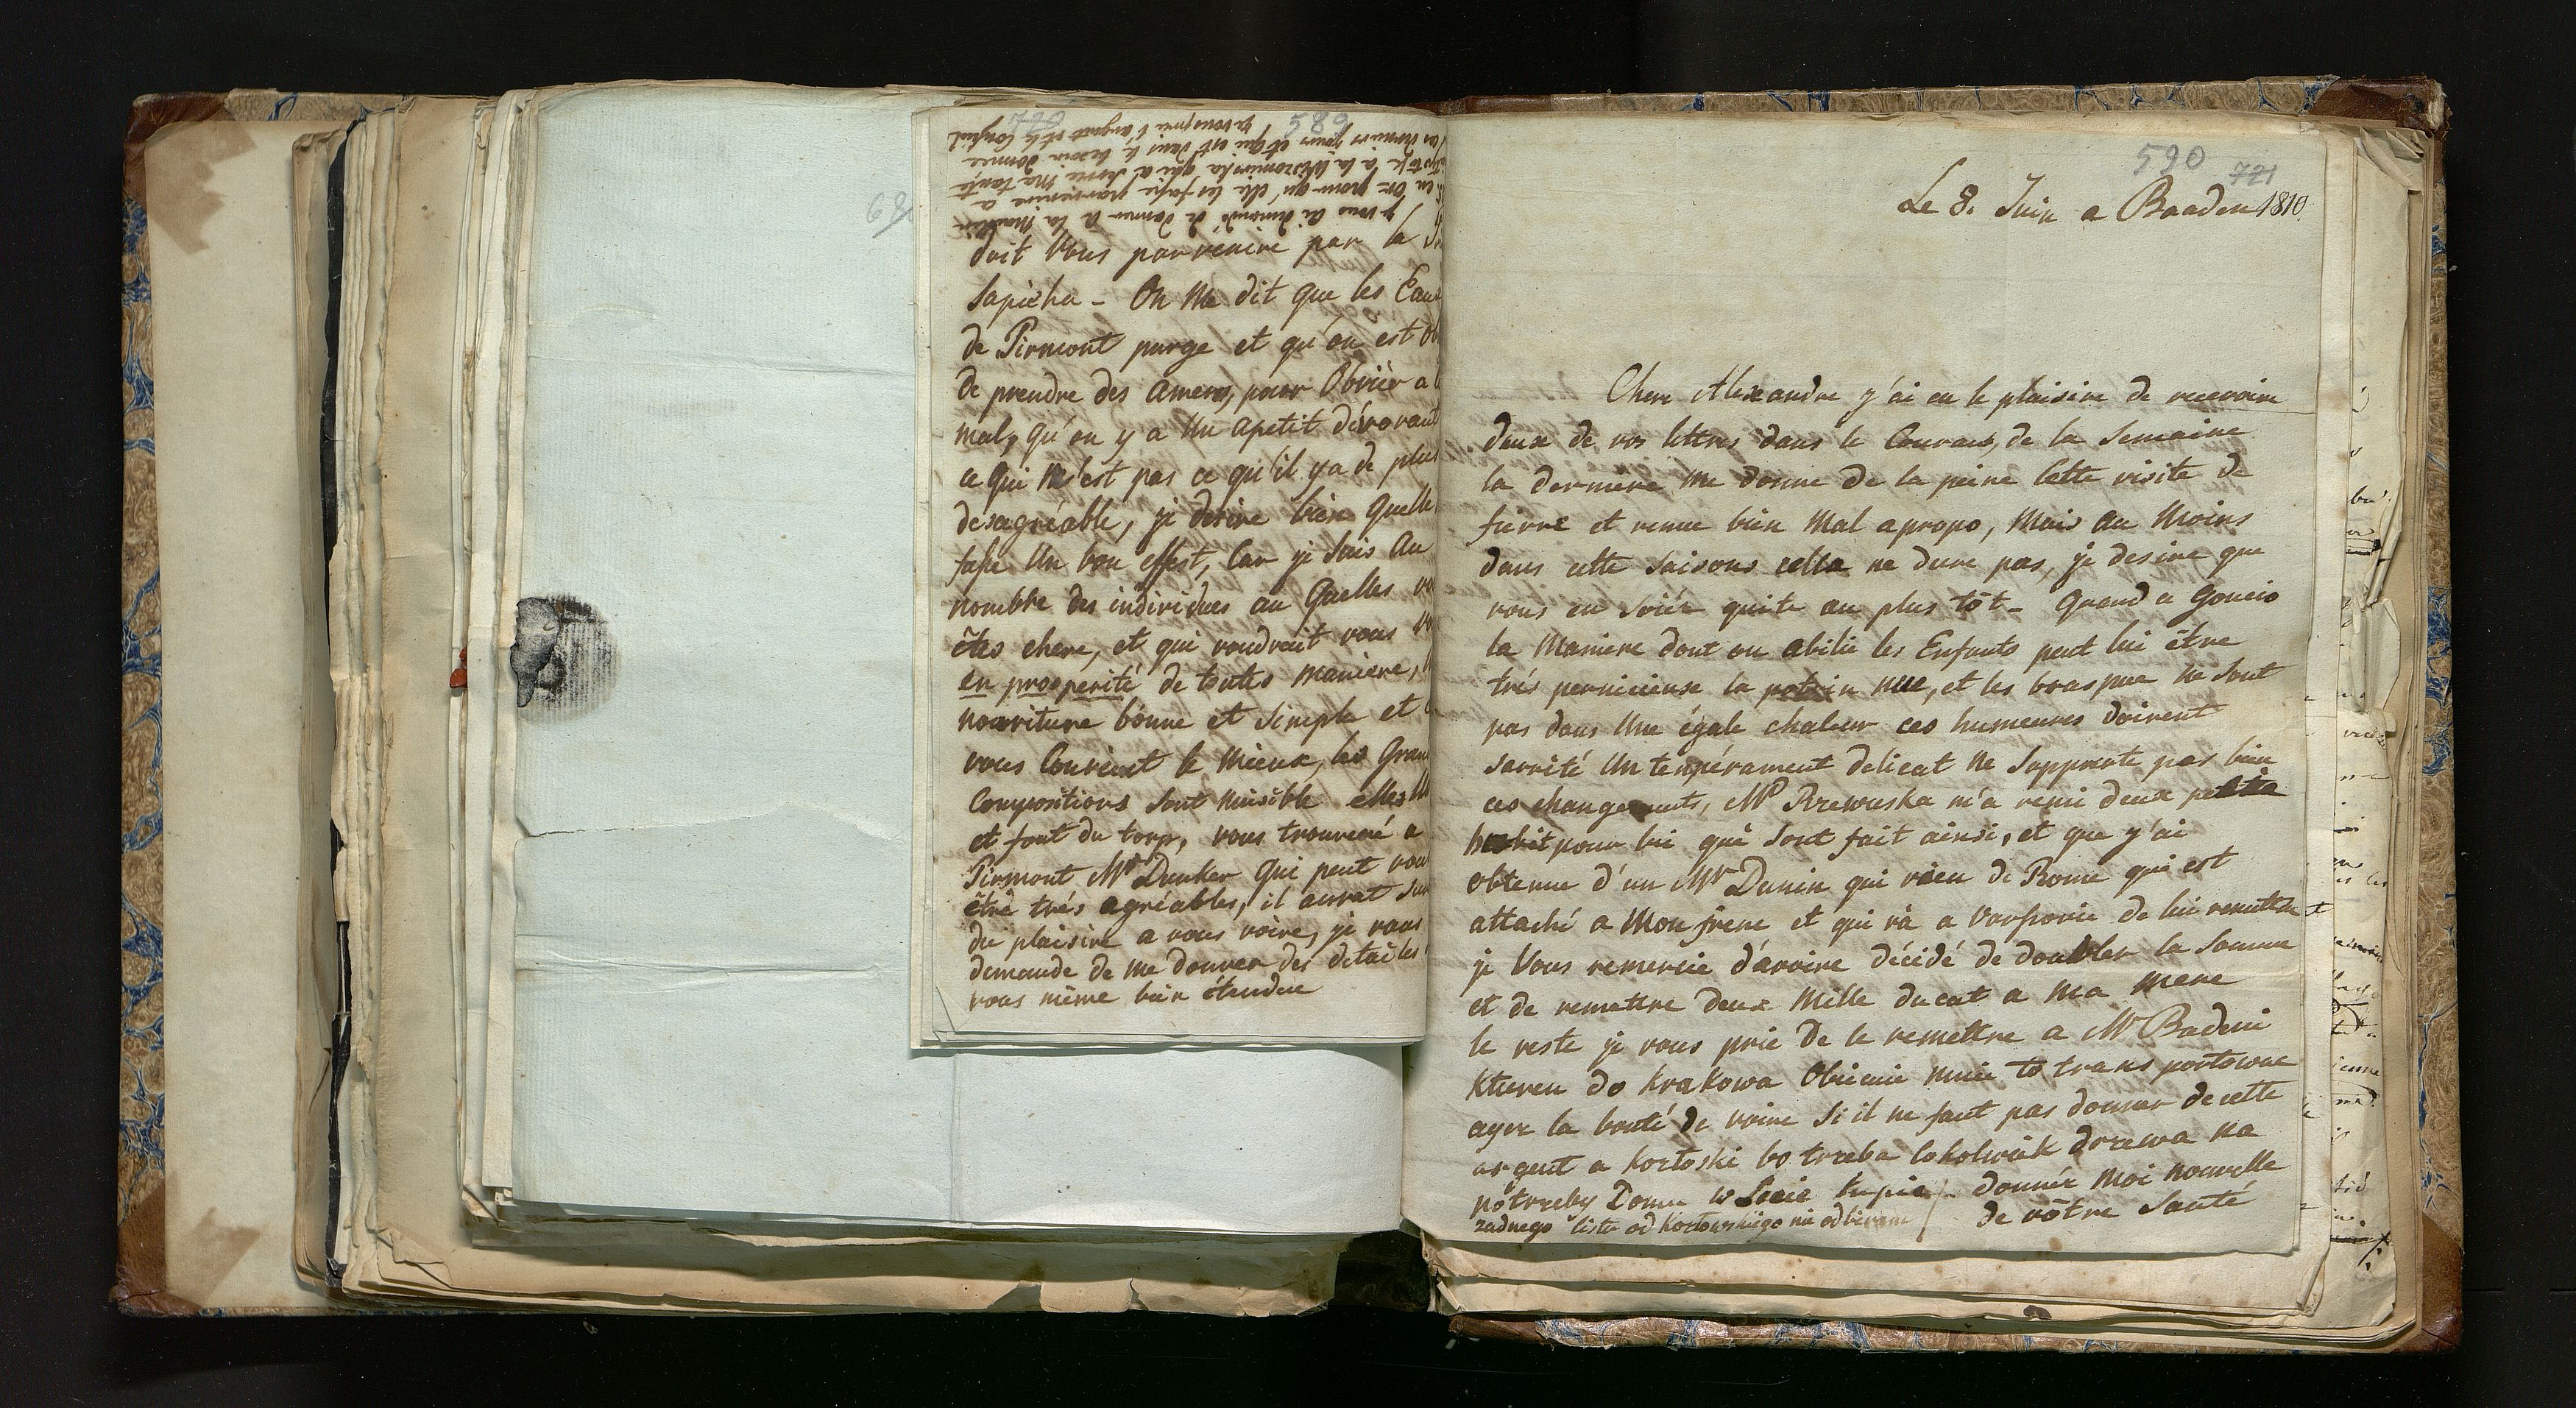 589
je vous ai demandé de donner a la
en or pour qu'elle les fasse parvenire a
a la qui a servie Ma tante
les derniers jours et qui est dans le besoin donner
je vous prie l'argent et le Conseil
doit Vous parvenire par la
Sapieha - On Me dit que les Eaux
de Pirmont purge et qu'on est
de prendre des amers, pour Obvier a
mal, qu'on y a Un apetit dévorant
ce qui N'est pas ce qu'il y a de plus
desagréable, je desire bien quelle
fasse Un bon effest, Car je suis Au
nombre des individues au Quelles
êtes chere, et qui voudrait vous
en prosperité de toutes maniere,
nouriture bonne et Simple et
vous Convient le Mieux, les Gran
Compositions sont nuisible elles
et font du torp, vous trouveré a
Pirmont Mr Dunker qui peut vou
être trés agréables, il aurat
du plaisire a vous voire, je vous
demande de me donner des détailes
vous même bien étendue
590 721
Le 8. Juin a Baaden 1810.
Chere Alexandre y'ai eu le plaisire de recevoire
deux de vos lettres dans le Courans, de la Semaine
la derniere me donne de la peine Cette visite de
fievre et venue bien Mal apropo, Mais au Moins
dans cette saisons cella ne dure pas, je desire que
vous en soiér quite au plus tôt - Quand a Goncio
la Maniere dont on abilie les Enfants peut lui être
trés pernicieuse la nue, et les bras ne sont
pas dans Une égale chaleur ces humeures doivent
Un tempérament delicat Ne Supporte pas bien
ces changements, Me Rzewuska m'a remi deux petite
habit pour lui qui sont fait ainsi, et que y'ai
obtenue d'un Mr Dunin qui vien de Rome qui est
attaché a Mon frere et qui vá a Varsovie de lui remettre
je Vous remercie d'avoire décidé de doubler la Somme
et de remettre deux Mille ducat a Ma Mere
le reste je vous prie De le remettre a Mr Badeni
do Krakowa Obiecuie mnie to transportowac
ayer la bonté de voire Si il ne faut pas donner de cette
argent a bo trzeba Cokolwiek drzewa na
potrzeby Domu w kupic donnér Moi Nouvelle
zadnego listu od Kozłowskiego nie odbieram de vôtre Santé